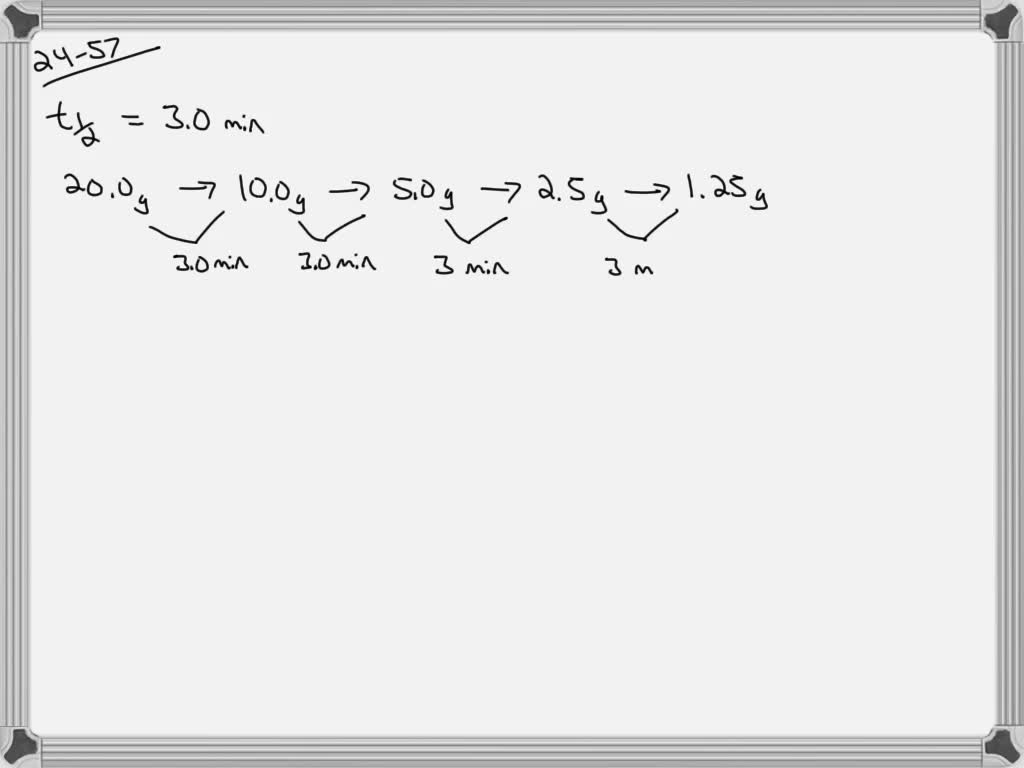 24-57
t½ = 3.0 min
20.0g → 10.0g → 5.0g → 2.5g → 1.25g
3.0 min 3.0 min 3 min 3 m